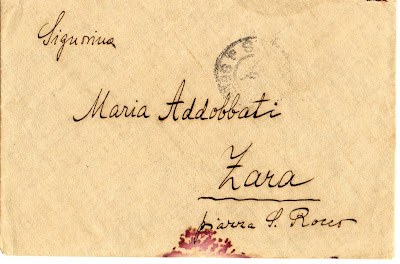 Signorina
Maria Addobbati
Zara
piazza S. Rocco